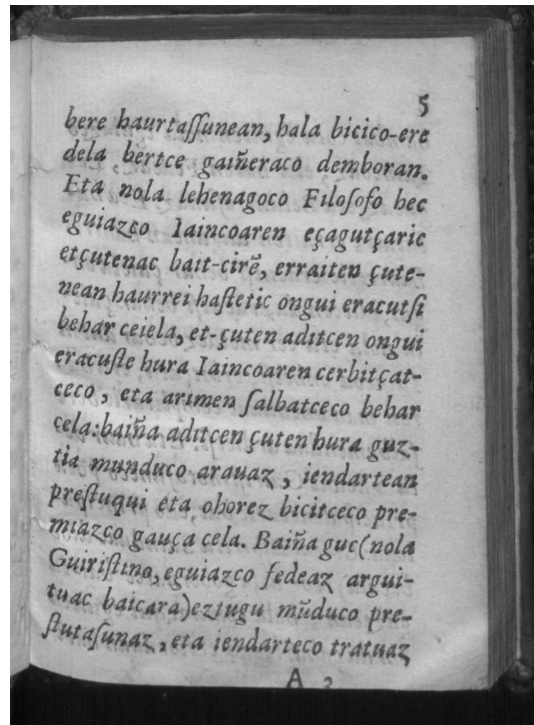 5
bere haurtaſſunean, hala bicico-ere
dela, bertce gaim̃eraco demboran.
Eta nola lehenagoco Filoſofo hec
eguiazco Iaincoaren eçagutçaric
etçutenac bait-cirẽ, erraiten çute-
nean haurrei haſtetic ongui eracutſi
behar ceiela, et-çuten aditcen ongui
eracuſte hura Iaincoaren cerbitçat-
ceco, eta arimen ſalbatceco behar
cela: baiña aditcen çuten hura guz-
tia munduco arauaz, iendartean
preſtuqui eta ohorez bicitceco pre-
miazco gauça cela. Baiña guc (nola
Guiriſtino, eguiazco fedeaz argui-
tuac baicara) eztugu mũduco pre-
ſtutaſunaz, eta iendarteco tratuaz
A 3